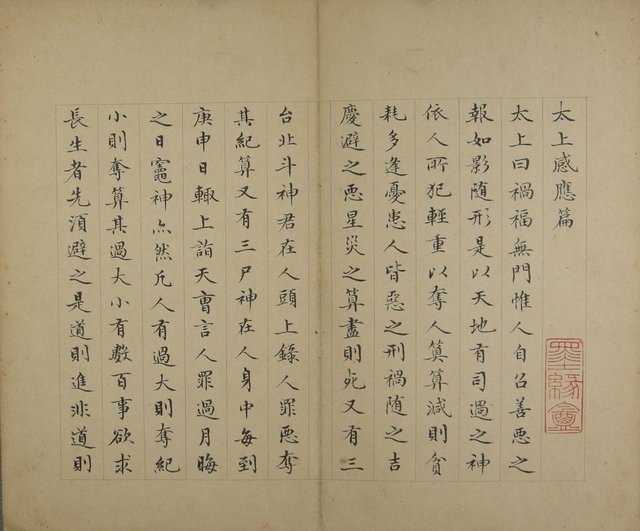 太上感應篇
太上曰禍福無門惟人自召善惡之
報如影随形是以天地有司過之神
依人所犯輕重以奪人算算減則貧
耗多逢憂患人皆惡之刑禍随之吉
慶避之惡星災之算盡則死又有三
台北斗神君在人頭上錄人罪惡奪
其紀算又有三尸神在人身中每到
庚申日輒上詣天曹言人罪過月晦
之日竈神亦然凡人有過大則奪紀
小則奪算其過大小有數百事欲求
長生者先須避之是道則進非道則
墨緣盦